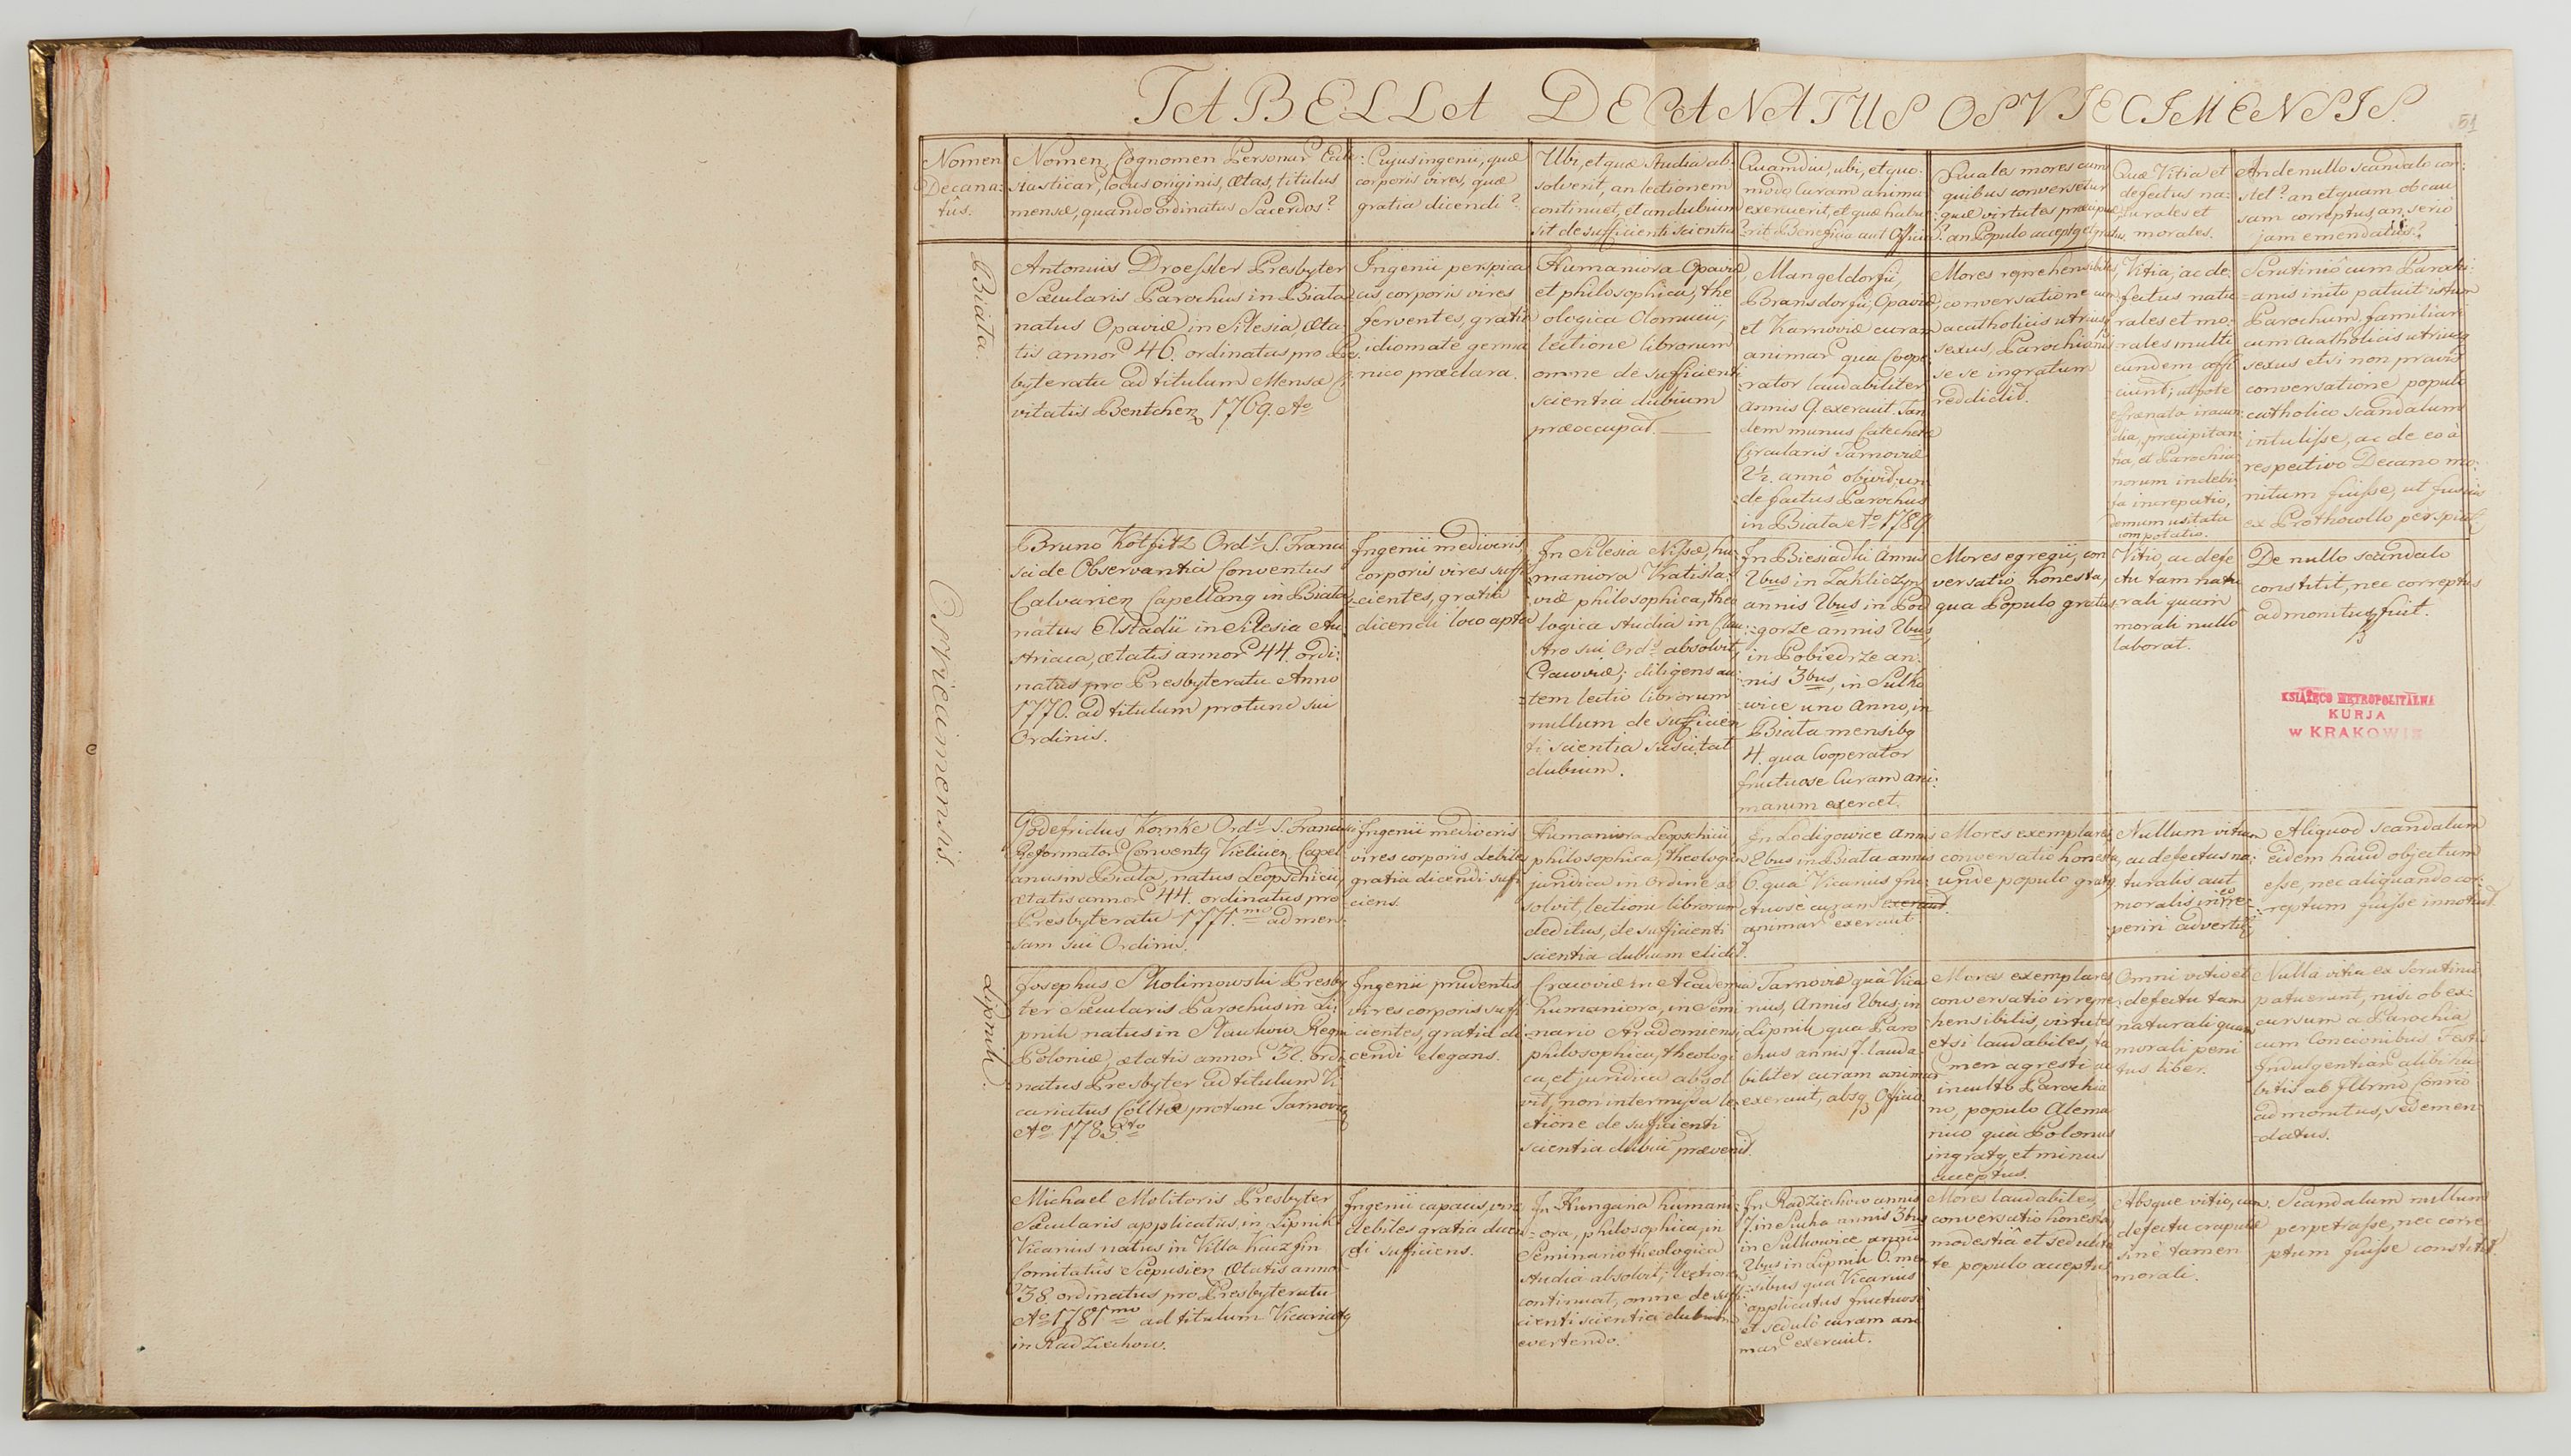 TABELLA DECANATUS OSVIECIMENSIS.
51
Nomen
Decana:
tûs.
Nomen, Cognomen Personar Eccle
siasticar, locus originis, ætas, titulus
mensæ, quando ordinatus Sacerdos?
Cujus ingenii, quæ
corporis vires, quæ
gratia dicendi?
Ubi, et quæ studia ab:
solverit, an lectionem
continuet, et an dubium
sit de sufficienti scientia
Quamdiu, ubi, et quo:
modo Curam animar
exercuerit, et quæ habue
rit Beneficia aut Officia?
Quales mores cum
quibus conversetur
quæ virtutes præcipuæ
an Populo acceptq et gratus.
Quæ Vitia et
defectus na:
turales et
morales.
An de nullo scandalo con:
stet? an et quam ob cau
sam correptus, an serio
jam emendatus?
Osviecimensis.
Biata.
Antonius Droessler Presbyter
Sæcularis Parochus in Biata
natus Opaviæ in Silesia, æta:
tis annor 46. ordinatus pro Pres
byteratu ad titulum Mensæ Ci
vitatis Bentchen 1769. Ao
Ingenii perspica
cis corporis vires
ferventes, gratia
idiomate germa
nico præclara.
Humaniora Opaviæ
et philosophica, the
ologica Olomucii,
lectione librorum
omne de sufficienti
scientia dubium
præoccupat.
Mangeldorfii,
Bransdorfii, Opaviæ,
et Karnoviæ curam
animar qua Coope
rator laudabiliter
annis 9. exercuit. Tan
dem munus Catechetæ
Circularis Tarnoviæ
2½. annô obivit, un
de factus Parochus
in Biata Ao 1789
Mores reprehensibiles,
conversatione cum
acatholicis utriusq
sexus, Parochianis
se se ingratum
reddidit.
Vitia, ac de:
fectus natu
rales et mo:
rales multi
eundem affi
ciunt; utpote
effrænata iracun
dia, præcipitan:
tia, et Parochia
norum indebi
ta increpatio,
demum usitata
compotatio.
Scrutiniô cum Parochi:
anis initô patuit istum
Parochum familiari
cum acatholicis utriusq
sexus etsi non pravâ
conversatione populo
catholico scandalum
intulisse, ac de eo à
respectivo Decano mo:
nitum fuisse, ut fusius
ex Prothocollo perspicit
Bruno Kotfitz Ord. S. Franci
sci de Observantia Conventus
Calvarien Capellanq in Biata
natus Elstadii in Silesia Au
striaca, ætatis annor 44. ordi:
natus pro Presbyteratu Anno
1770. ad titulum protunc sui
Ordinis.
Ingenii mediocris,
corporis vires suffi
cientes, gratia
dicendi loco apta
In Silesia Nissæ hu
maniora Vratisla:
viæ philosophica, theo
logica studia in Clau:
stro sui Ord. absolvit
Cracoviæ; diligens au
tem lectio librorum
nullum de sufficien
ti scientia suscitat
dubium.
In Biesiadki Annis
2bus in Zakliczyn
annis 2bus in Pod
gorze annis 2bus
in Pobiedrze an:
nis 3bus, in Sulko
wice uno anno, in
Biata mensibq
4. qua Cooperator
fructuose Curam ani:
marum exercet.
Mores egregii, con
versatio honesta,
qua Populo gratus
Vitio, ac defe
ctu tam natu
rali quam
morali nullô
laborat.
De nullo scandalo
constitit, nec correptus
admonitusq fuit.
KSIĄŻĘCO METROPOLITALNA
KURJA
w KRAKOWIE
Godefridus Komke Ord. S. Francisci
Reformator Conventq Vielicien Capel
lanus in Biata, natus Leopschicii,
ætatis annor 44. ordinatus pro
Presbyteratu 1771.mo ad men:
sam sui Ordinis.
Ingenii mediocris
vires corporis debiles
gratia dicendi suffi
ciens.
Humaniora Leopschicii
philosophica, theologica
juridica in Ordine ab
solvit, lectioni librorum
deditus, de sufficienti
scientia dubium elidit.
In Lodigowice annis
2bus in Biata annis
6. qua Vicarius fru:
ctuose curam exercuit
animar exercuit
Mores exemplares,
conversatio honesta,
unde populo gratq.
Nullum vitium
ac defectus na:
turalis aut
moralis in eo re:
periri advertit
Aliquod scandalum
eidem haud objectum
esse, nec aliquando cor:
reptum fuisse innotuit.
Lipnik.
Josephus Skolimowski Presby
ter Sæcularis Parochus in Li:
pnik natus in Slawkow Regni
Poloniæ, ætatis annor 32. ordi
natus Presbyter ad titulum Vi
cariatus Colltæ protunc Tarnovien
Ao 1783tio
Ingenii prudentis
vires corporis suffi
cientes, gratia di
cendi elegans.
Cracoviæ in Academia
humaniora, in Semi
nario Aradomiensi
philosophica, theologi
ca, et juridica absol
vit, non intermissa le
ctione de sufficienti
scientia dubiū prævenit.
Tarnoviæ quà Vica
rius, Annis 2bus, in
Lipnik qua Paro
chus annis 7. lauda
biliter curam animar
exercuit, absq Officio.
Mores exemplares
conversatio irrepre
hensibilis, virtutes
etsi laudabiles, ta
men agresti ac
inculto Parochia
no, populo Alema
nico, quà Polonus
ingratq, et minus
acceptus.
Omni vitio et
defectu tam
naturali quam
morali peni
tus liber.
Nulla vitia ex Scrutinio
patuerunt, nisi ob ex:
cursum a Parochia
cum Concionibus Festis
Indulgentiar alibi ha
bitis ab Illrmo Conrio
admonitus, sed emen
datus.
Michael Molitoris Presbyter
Sæcularis applicatus in Lipnik
Vicarius natus in Villa
Comitatûs Scepusien Ætatis anno
38. ordinatus pro Presbyteratu
Ao 1781mo ad titulum Vicariatq
in Radziechow.
Ingenii capacis, vires
debiles gratia dicen
di sufficiens.
In Hungaria humani
ora, philosophica, in
Seminario theologica
studia absolvit, lectionem
continuat, omne de suffi
cienti scientia dubium
evertendo.
In Radziechow annis
7. in Sucha annis 3bus
in Sulkowice annis
2bus in Lipnik 6. men
sibus qua Vicarius
applicatus fructuose
et sedulô curam ani
mar exercuit.
Mores laudabiles,
conversatio honesta
modestiâ et sedulita
te populo acceptus
Absque vitio, cum
defectu crapulæ
sine tamen
morali.
Scandalum nullum
perpetrasse, nec corre
ptum fuisse constitit.